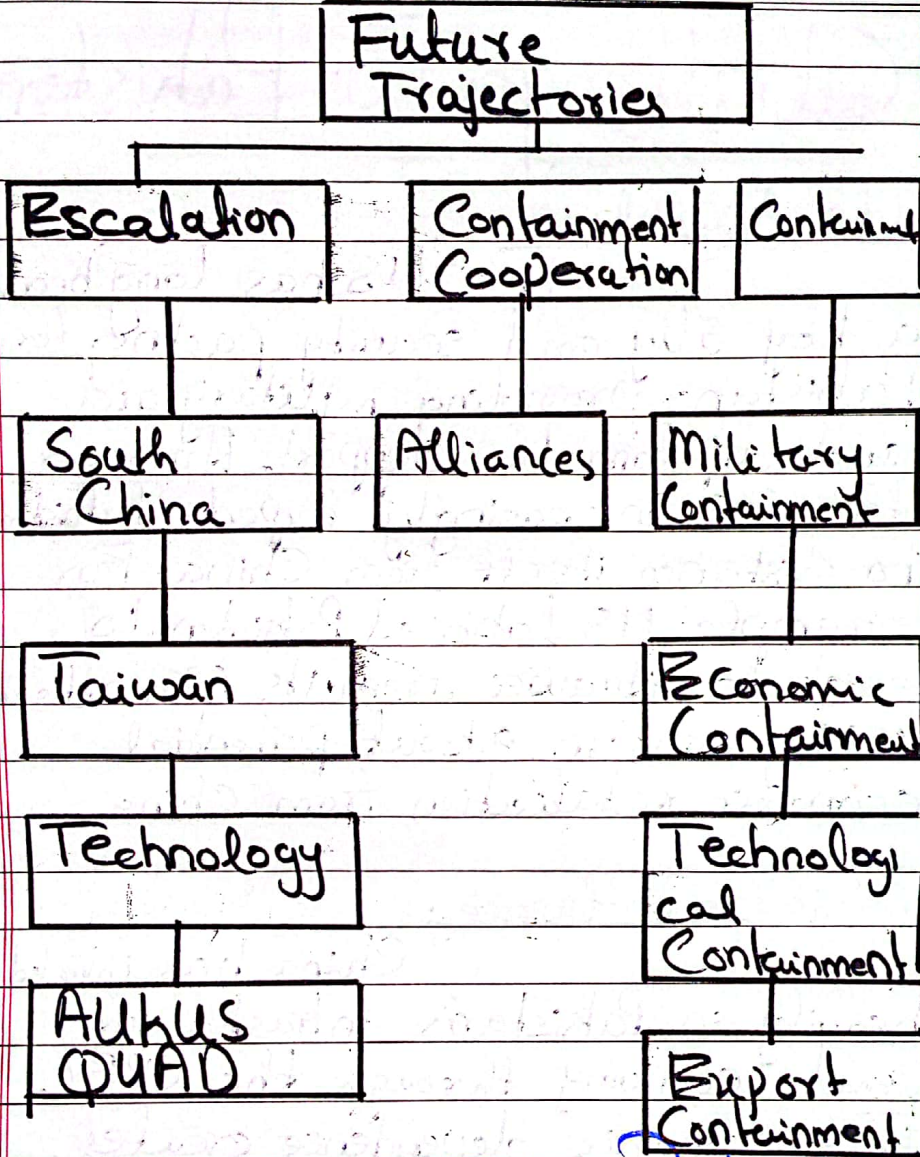 Future
Trajectories
Escalation
Containment
Cooperation
Containmt
South
China
Alliances
Military
Containment
Taiwan
Economic
Containment
Technology
Technologi
cal
Containment
AUKUS
QUAD
Export
Containment